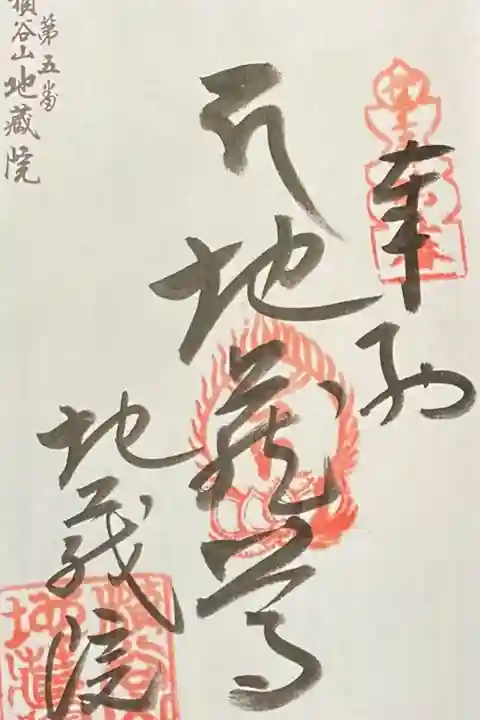 奉納
地蔵尊
地蔵院
第五番
谷山地藏院